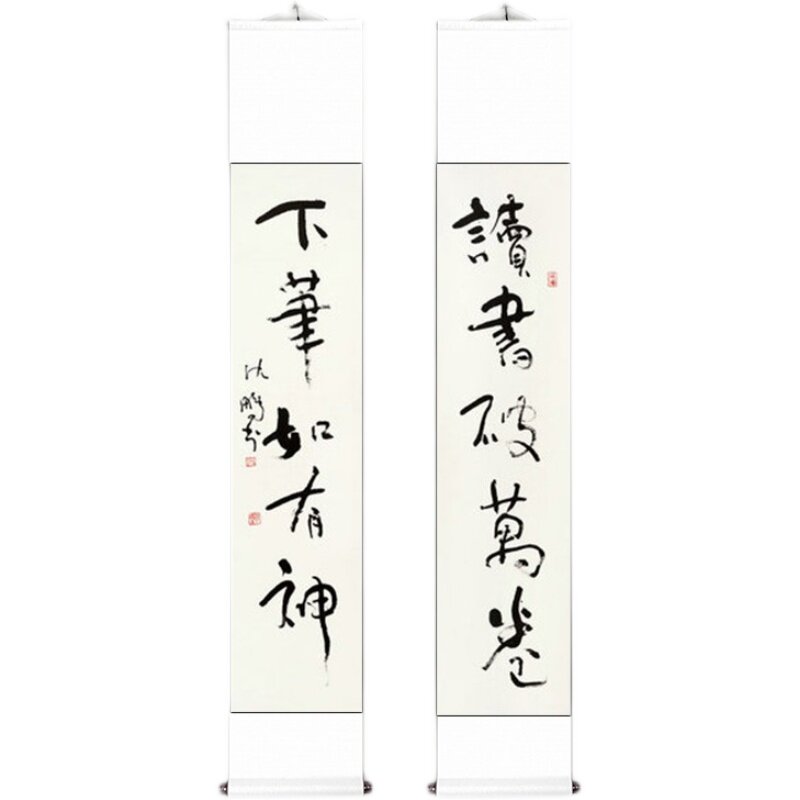 讀書破萬卷
下筆如有神
沈鵬書